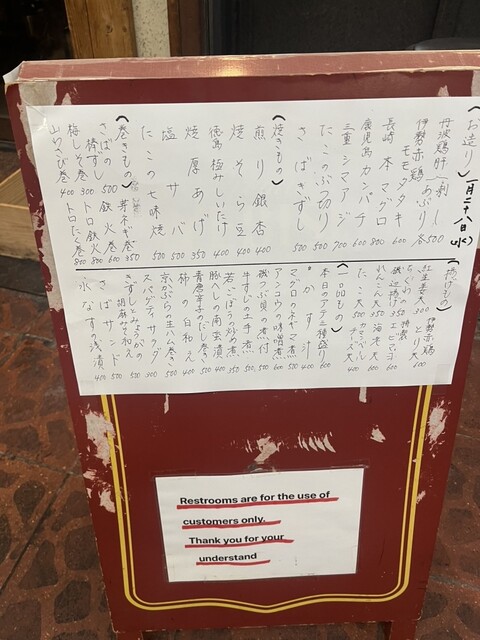 (お造り) 一月二十八日(水)
丹波鶏肝(刺し)
伊勢赤鶏 あぶり 各500
モモ タタキ
長崎 本マグロ 800
鹿児島 カンパチ 600
三重 シマアジ 700
たこのぶつ切り 500
さばきずし 500
(焼きもの)
煎り銀杏 400
焼そら豆 400
徳島 極みしいたけ 500
焼厚あげ 350
塩サバ 500
たこの七味焼 500
(巻きもの) 芽ネギ巻 350
さばの棒ずし 500 鉄火巻 600
梅しそ巻 300 トロ鉄火 800
山わさび巻 400 トロたく巻 800
(揚げもの)
伊勢赤鶏 とり天 600
紅生姜天 300
ちくわ
磯辺揚げ 350
特製 エビマヨ
れんこん天 350 海老天
たこ天 500 カマンベールチーズ天 400
(一品もの)
本日のアテ三種盛り
かす汁 400
マグロのネギマ煮
アンコウの味噌煮 600
磯つぶ貝の煮付 500
牛すじの土手煮
若ごぼうの炒め煮 350
豚へしの南蛮漬
青唐辛子のだし巻き 500
柿の白和え 400
京かぶらの生ハム巻き 500
スパゲティサラダ 300
きずしとみょうがの
胡麻みそ和え
さばサンド 500
水なすの浅漬 400
Restrooms are for the use of
customers only.
Thank you for your
understand